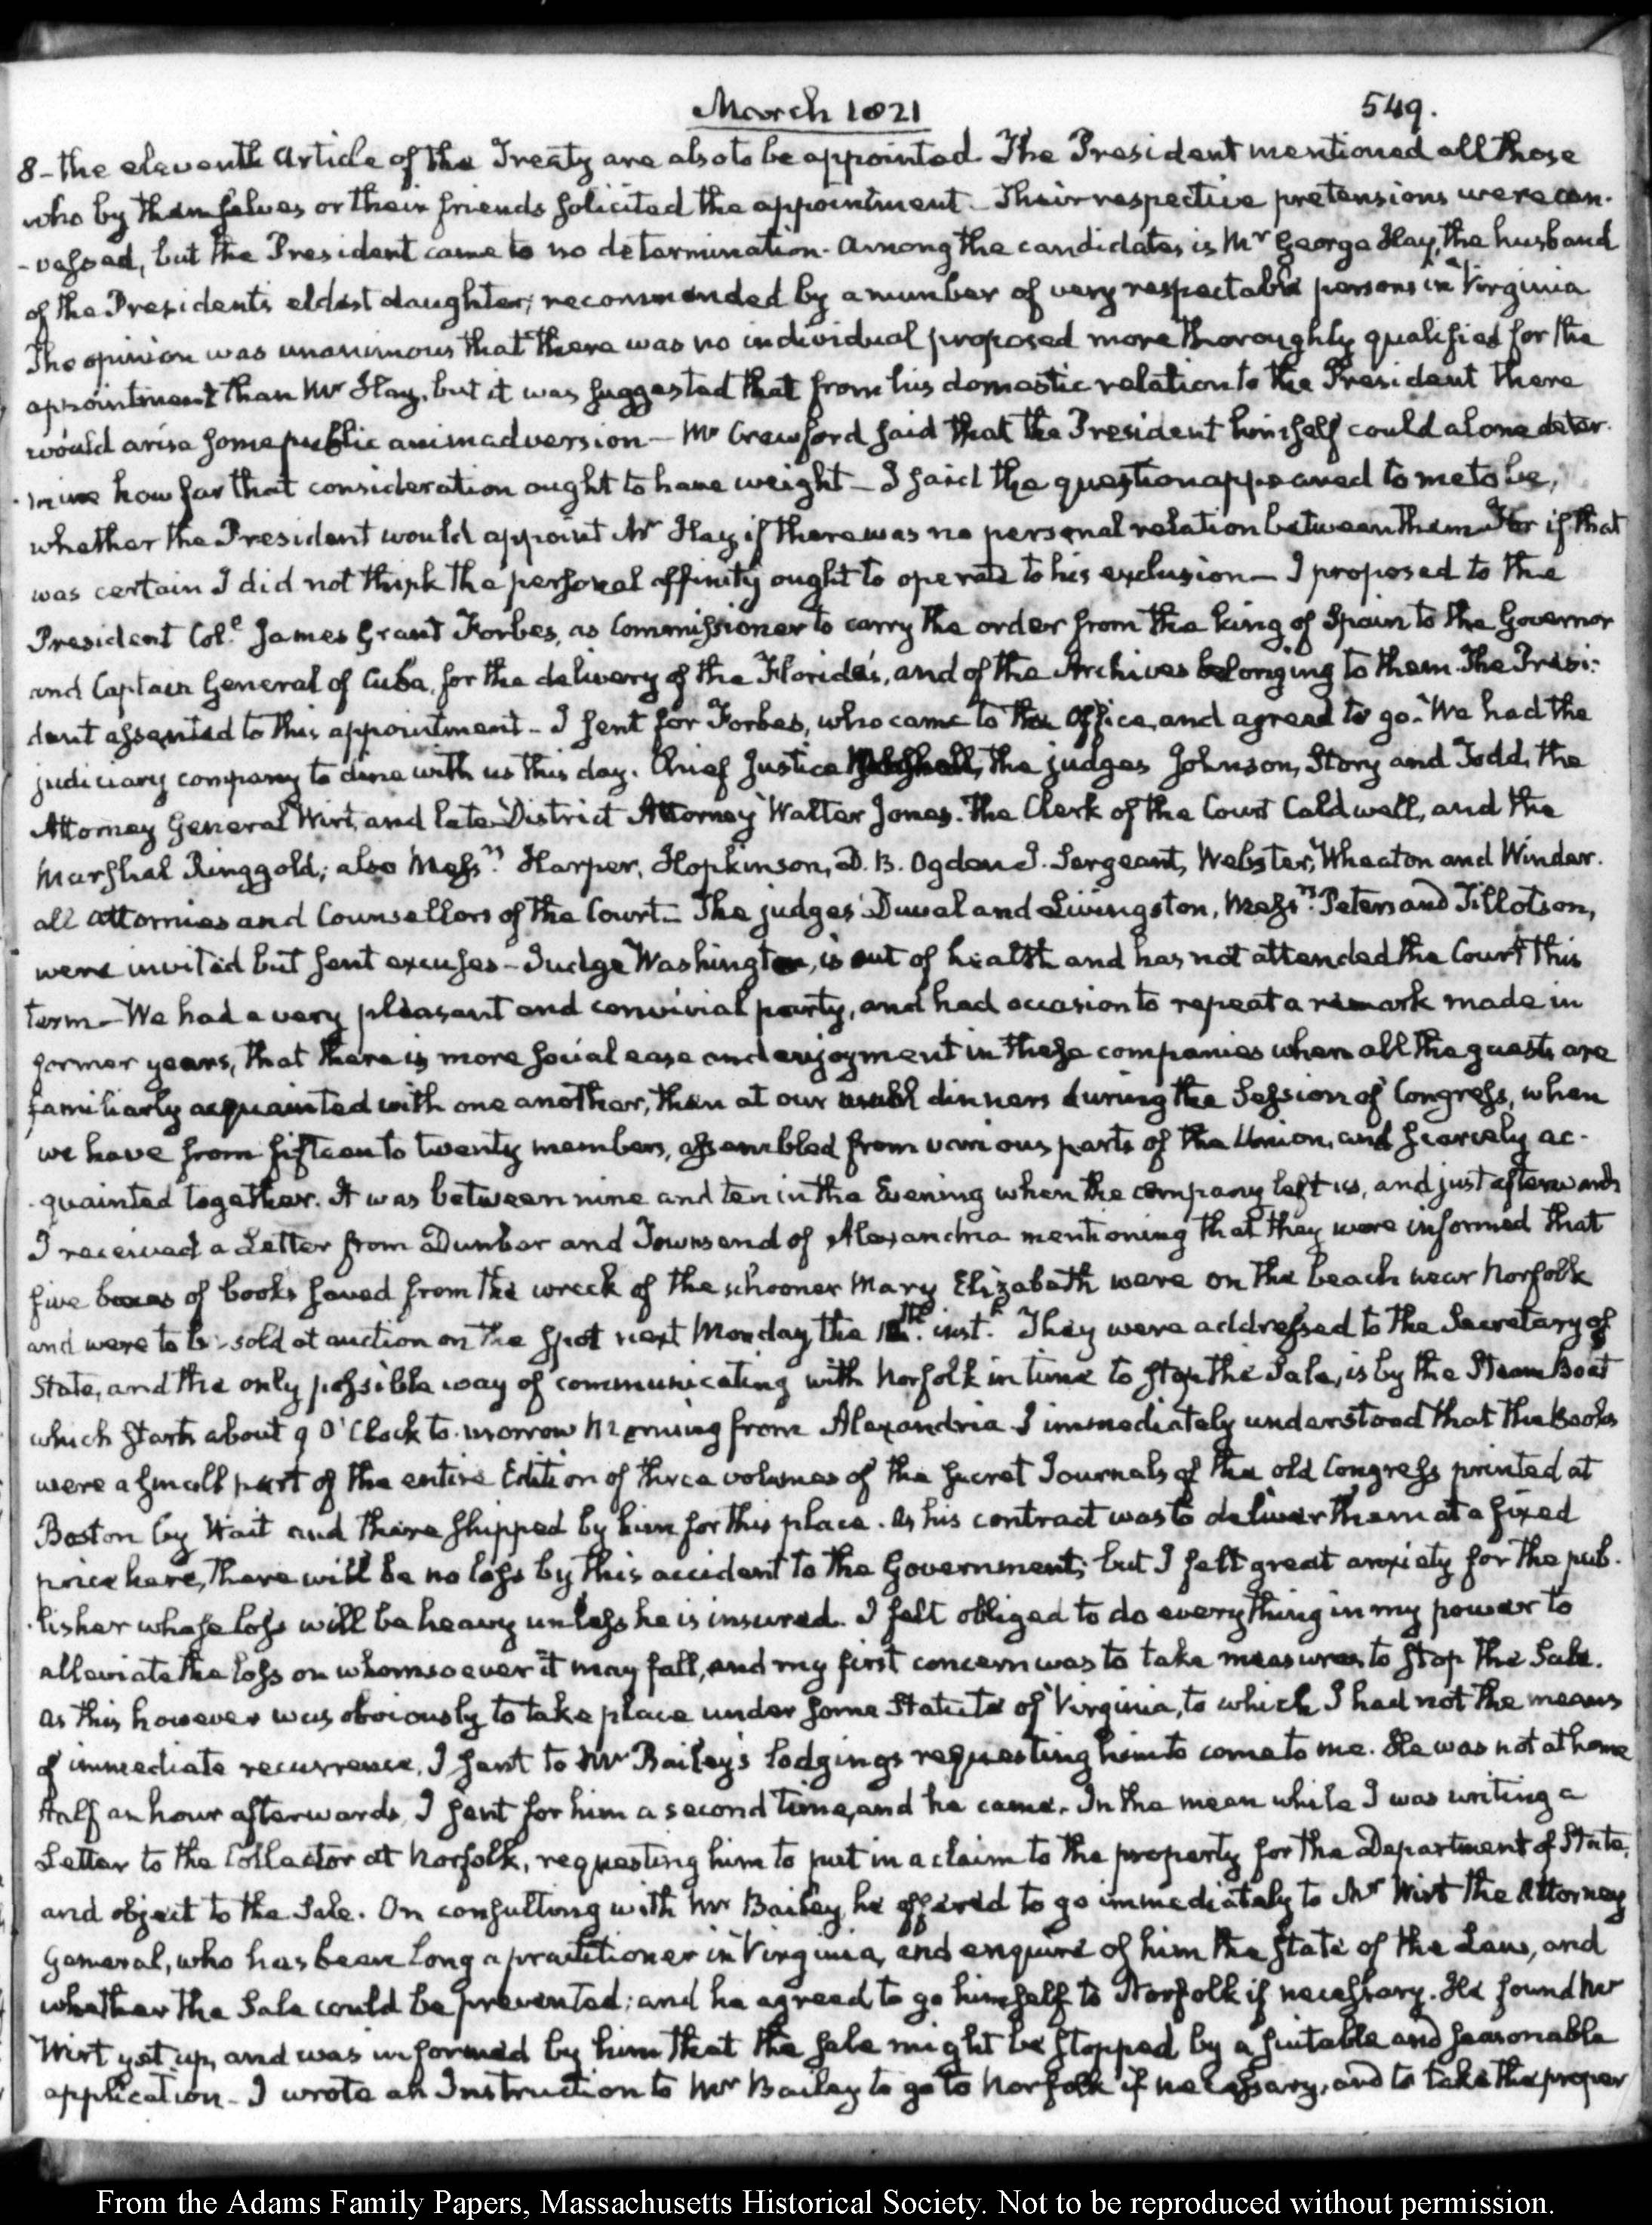 March 1821
549.
8 - the eleventh Article of the Treaty are also to be appointed. The President mentioned all those
who by themselves or their friends solicited the appointment - Their respective pretensions were can-
-vassed, but the President came to no determination. Among the candidates is Mr George Hay, the husband
of the President's eldest daughter; recommended by a number of very respectable persons in Virginia
The opinion was unanimous that there was no individual proposed more thoroughly qualified for the
appointment than Mr Hay, but it was suggested that from his domestic relation to the President there
would arise some public animadversion - Mr Crawford said that the President himself could alone deter-
-mine how far that consideration ought to have weight - I said the question appeared to me to be,
whether the President would appoint Mr Hay if there was no personal relation between them For if that
was certain I did not think the personal affinity ought to operate to his exclusion - I proposed to the
President Coll. James Grant Forbes, as Commissioner to carry the order from the king of Spain to the Governor
and Captain General of Cuba, for the delivery of the Florida's, and of the Archives belonging to them. The Presi-
dent assented to this appointment - I sent for Forbes, who came to the Office, and agreed to go. We had the
judiciary company to dine with us this day. Chief Justice Marshall, the judges Johnson, Story and Todd, the
Attorney General Wirt, and late District Attorney Walter Jones. The Clerk of the Court Caldwell, and the
Marshal Ringgold; also Messrs. Harper, Hopkinson, D. B. Ogden J. Sergeant, Webster, Wheaton and Winder.
all attornies and Counsellors of the Court - The judges Duval and Livingston, Messrs. Peters and Tillotson,
were invited but sent excuses - Judge Washington, is out of health and has not attended the Court this
term - We had a very pleasant and convivial party, and had occasion to repeat a remark made in
former years, that there is more social ease and enjoyment in these companies when all the guests are
familiarly acquainted with one another, than at our usual dinners during the Session of Congress, when
we have from fifteen to twenty members, assembled from various parts of the Union, and scarcely ac-
-quainted together. It was between nine and ten in the Evening when the company left us, and just afterwards
I received a Letter from Dunbar and Townsend of Alexandria mentioning that they were informed that
five boxes of books saved from the wreck of the schooner Mary Elizabeth were on the beach near Norfolk
and were to be sold at auction on the spot next Monday the 12th. inst. They were addressed to the Secretary of
State, and the only possible way of communicating with Norfolk in time to stop the Sale, is by the Steam Boat
which starts about 9 O'Clock to-morrow Morning from Alexandria. I immediately understood that the Books
were a small part of the entire Edition of three volumes of the secret Journals of the old Congress printed at
Boston by Wait and there shipped by him for this place. As his contract was to deliver them at a fixed
price here, there will be no loss by this accident to the Government; but I felt great anxiety for the pub-
-lisher whose loss will be heavy unless he is insured. I felt obliged to do every thing in my power to
alleviate the loss on whomsoever it may fall, and my first concern was to take measures to stop the Sale.
As this however was obviously to take place under some Statute of Virginia, to which I had not the means
of immediate recurrence, I sent to Mr Bailey's lodgings requesting him to come to me. He was not at home
Half an hour afterwards, I sent for him a second time, and he came. In the mean while I was writing a
Letter to the Collector at Norfolk, requesting him to put in a claim to the property for the Department of State,
and object to the Sale. On consulting with Mr Bailey, he offered to go immediately to Mr Wirt the Attorney
General, who has been long a practitioner in Virginia, and enquire of him the state of the Law, and
whether the Sale could be prevented; and he agreed to go himself to Norfolk if necessary. He found Mr
Wirt yet up, and was informed by him that the sale might be stopped by a suitable and seasonable
application - I wrote an Instruction to Mr Bailey to go to Norfolk if necessary, and to take the proper
From the Adams Family Papers, Massachusetts Historical Society. Not to be reproduced without permission.